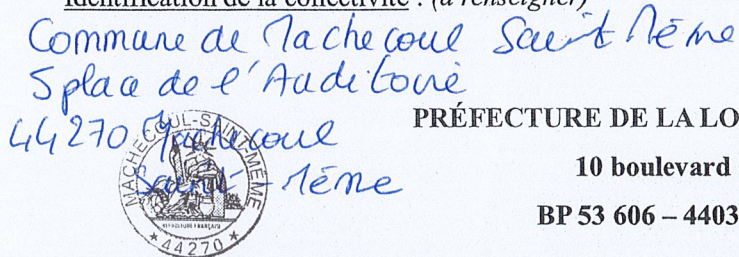 Identification de la collectivité : (à renseigner)
Commune de Machecoul Saint Même
5 place de l'Auditoire
44270 Machecoul
Saint-Même
MACHECOUL-SAINT-MÊME
RÉPUBLIQUE FRANÇAISE
* 44270 *
PRÉFECTURE DE LA LO
10 boulevard
BP 53 606 – 4403